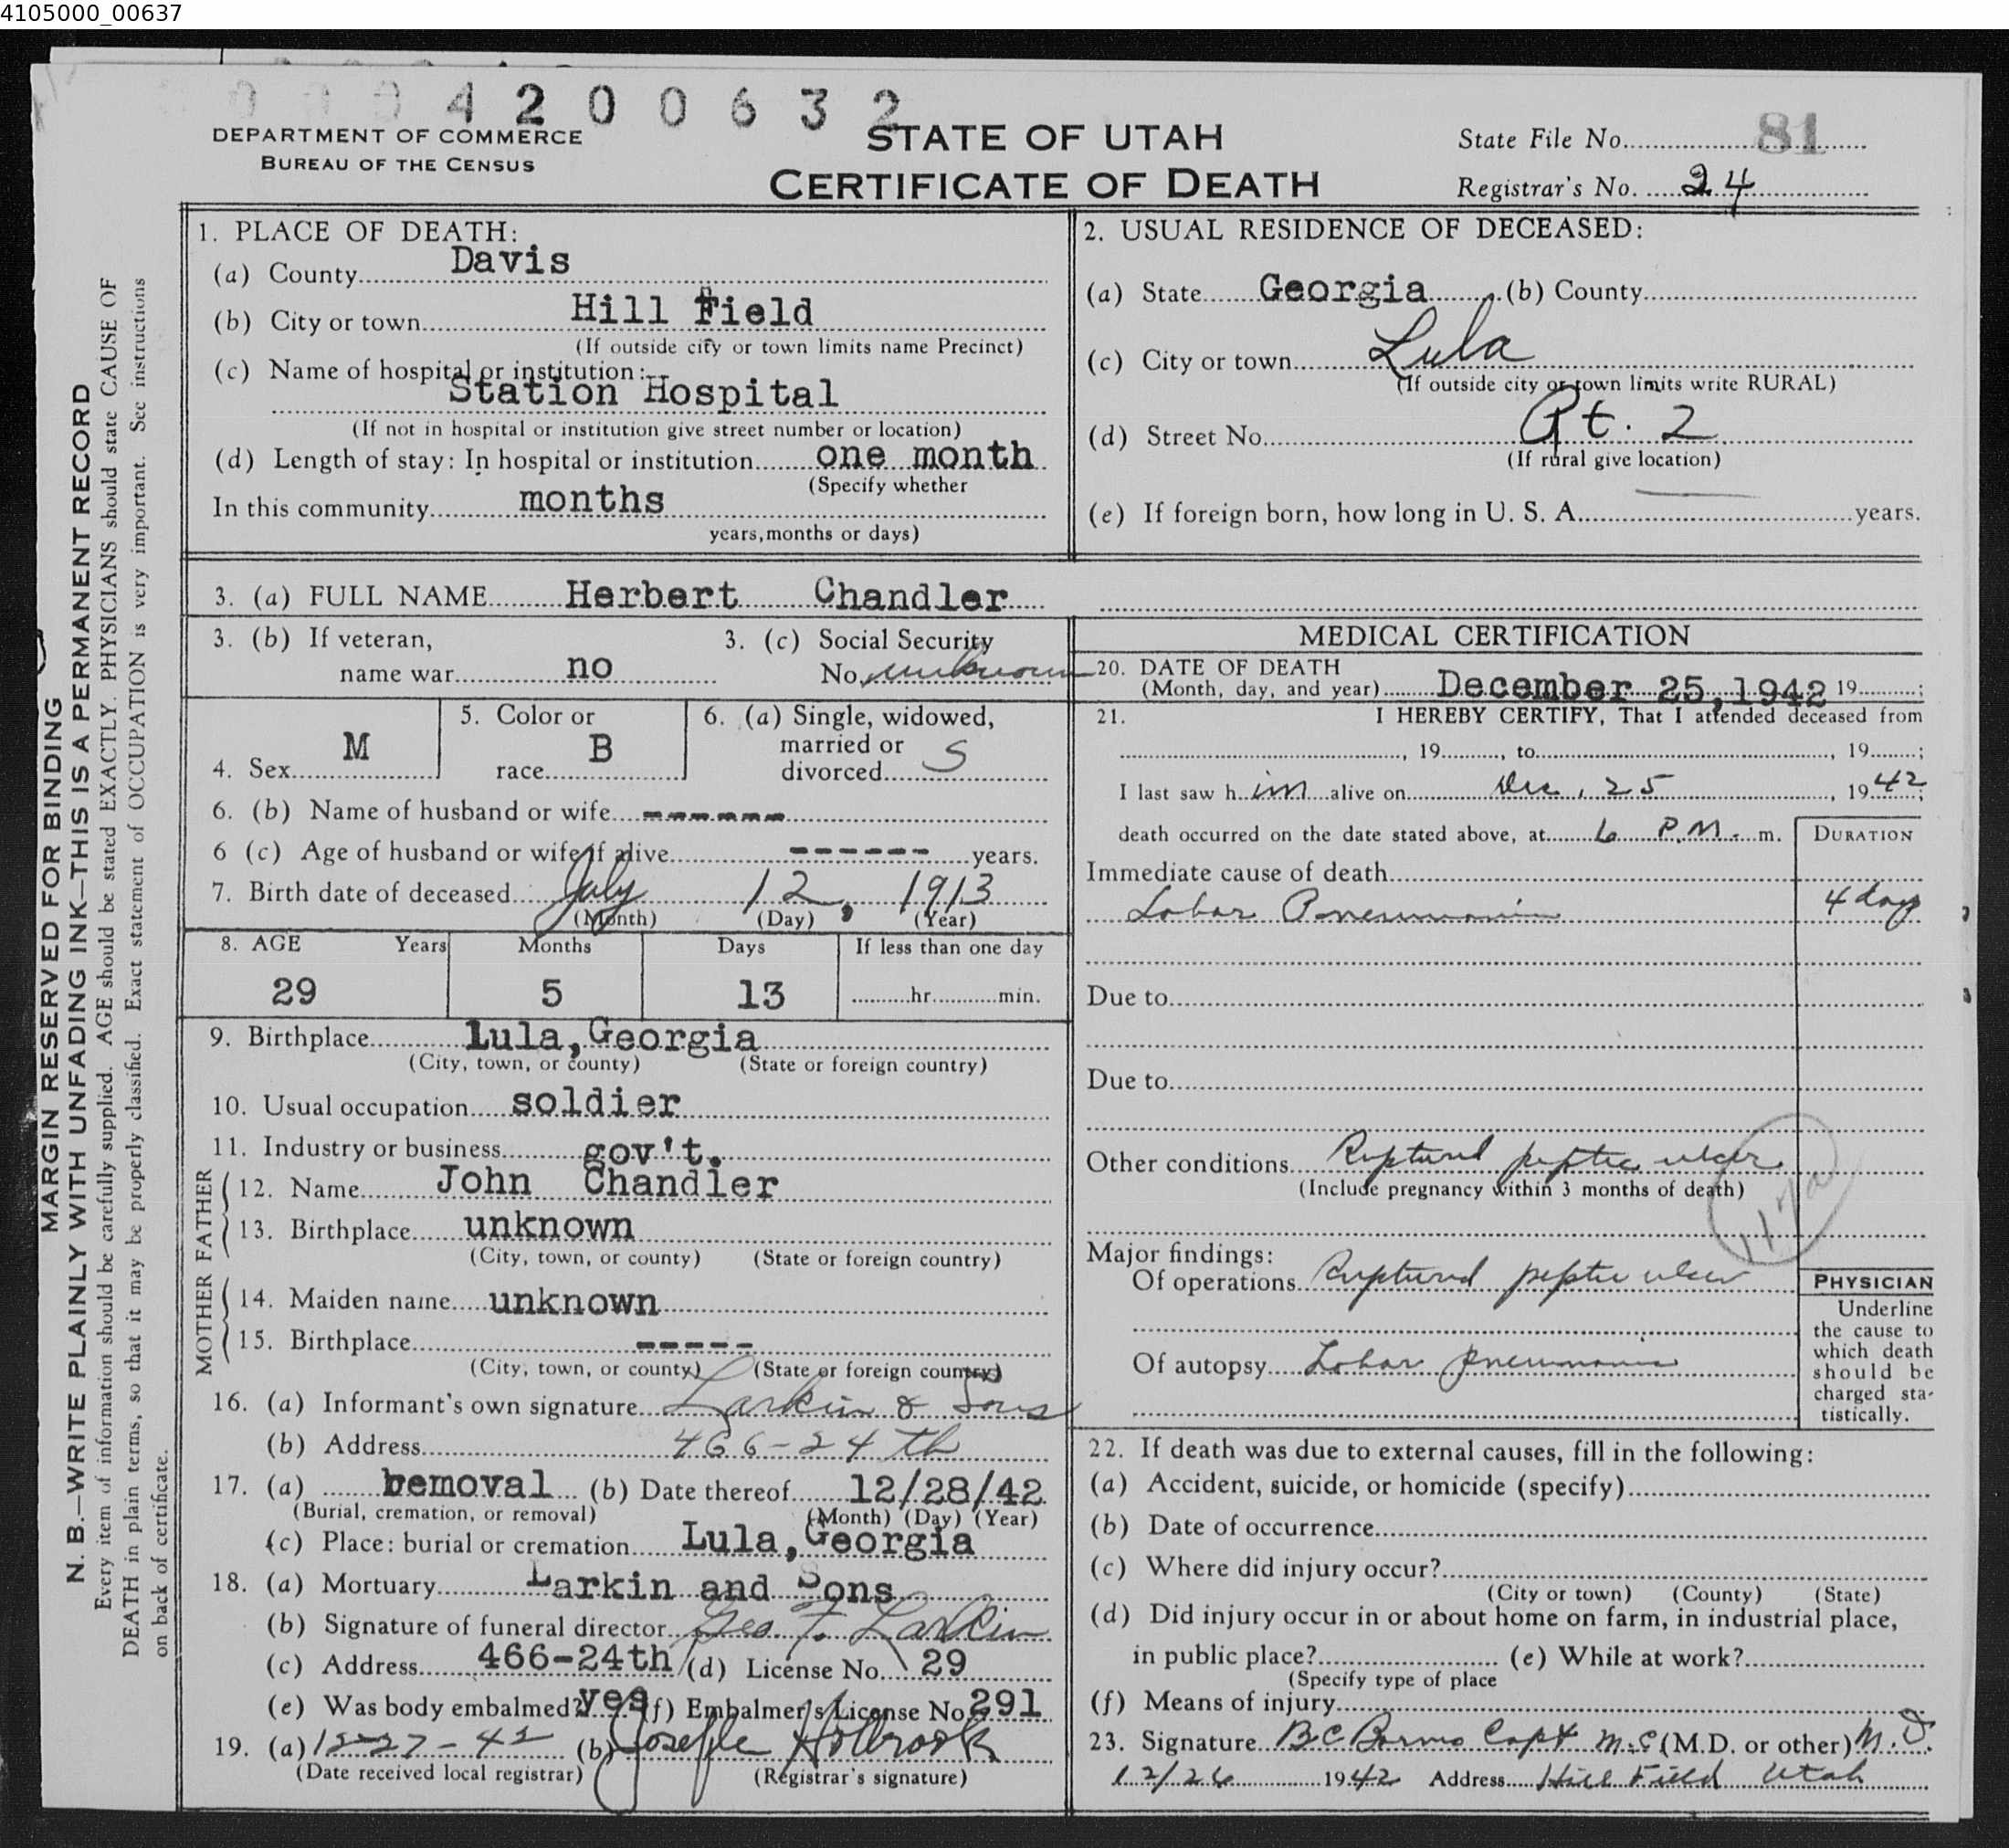 4105000_00637
4 2 0 0 6 3 2
DEPARTMENT OF COMMERCE
BUREAU OF THE CENSUS
STATE OF UTAH
CERTIFICATE OF DEATH
State File No. 81
Registrar's No. 24
MARGIN RESERVED FOR BINDING
N. B.—WRITE PLAINLY WITH UNFADING INK—THIS IS A PERMANENT RECORD
Every item of information should be carefully supplied. AGE should be stated EXACTLY. PHYSICIANS should state CAUSE OF
DEATH in plain terms, so that it may be properly classified. Exact statement of OCCUPATION is very important. See instructions
on back of certificate.
1. PLACE OF DEATH:
(a) County Davis
(b) City or town Hill Field
(If outside city or town limits name Precinct)
(c) Name of hospital or institution:
Station Hospital
(If not in hospital or institution give street number or location)
(d) Length of stay: In hospital or institution one month
(Specify whether
In this community months
years, months or days)
2. USUAL RESIDENCE OF DECEASED:
(a) State Georgia (b) County
(c) City or town Lula
(If outside city or town limits write RURAL)
(d) Street No. Rt. 2
(If rural give location)
(e) If foreign born, how long in U. S. A. years.
3. (a) FULL NAME Herbert Chandler
3. (b) If veteran,
name war no
3. (c) Social Security
No. unknown
4. Sex M
5. Color or
race B
6. (a) Single, widowed,
married or
divorced S
6. (b) Name of husband or wife ------
6 (c) Age of husband or wife if alive ------ years.
7. Birth date of deceased July 12, 1913
(Month) (Day) (Year)
8. AGE Years Months Days If less than one day
29 5 13 hr. min.
9. Birthplace Lula, Georgia
(City, town, or county) (State or foreign country)
10. Usual occupation soldier
11. Industry or business gov't.
FATHER
12. Name John Chandler
13. Birthplace unknown
(City, town, or county) (State or foreign country)
MOTHER
14. Maiden name unknown
15. Birthplace -----
(City, town, or county) (State or foreign country)
16. (a) Informant's own signature Larkin & Sons
(b) Address 466-24th
17. (a) removal (b) Date thereof 12/28/42
(Burial, cremation, or removal) (Month) (Day) (Year)
(c) Place: burial or cremation Lula, Georgia
18. (a) Mortuary Larkin and Sons
(b) Signature of funeral director Geo. F. Larkin
(c) Address 466-24th (d) License No. 29
(e) Was body embalmed? yes (f) Embalmer's License No. 291
19. (a) 12-27-42 (b) Holbrook
(Date received local registrar) (Registrar's signature)
MEDICAL CERTIFICATION
20. DATE OF DEATH
(Month, day, and year) December 25, 1942 19 ;
21. I HEREBY CERTIFY, That I attended deceased from
, 19 , to , 19 ;
I last saw h im alive on Dec. 25, 1942;
death occurred on the date stated above, at 6 P.M. m.
DURATION
Immediate cause of death
Lobar Pneumonia 4 days
Due to
Due to
Other conditions Ruptured peptic ulcer
(Include pregnancy within 3 months of death)
117a
Major findings:
Of operations Ruptured peptic ulcer
Of autopsy Lobar pneumonia
PHYSICIAN
Underline
the cause to
which death
should be
charged sta-
tistically.
22. If death was due to external causes, fill in the following:
(a) Accident, suicide, or homicide (specify)
(b) Date of occurrence
(c) Where did injury occur?
(City or town) (County) (State)
(d) Did injury occur in or about home on farm, in industrial place,
in public place? (e) While at work?
(Specify type of place
(f) Means of injury
23. Signature B C Capt M.C (M.D. or other) M.D.
12/26 1942 Address Hill Field Utah